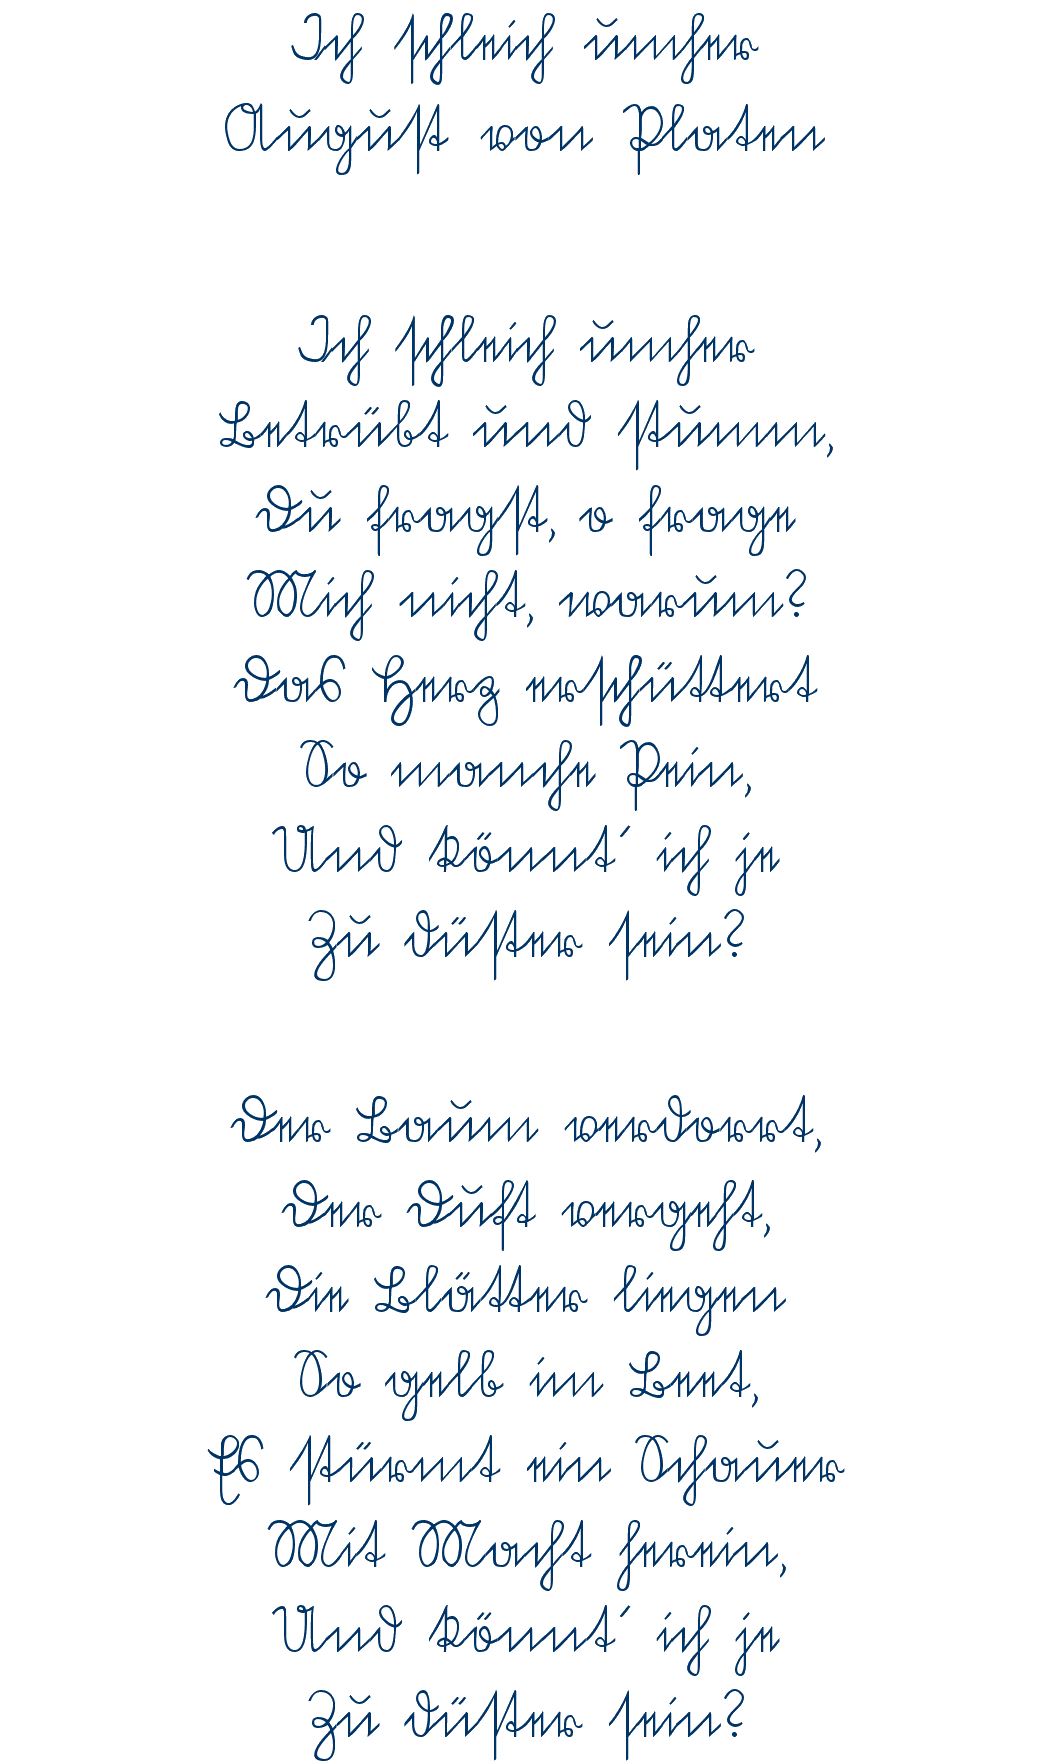 Ich schleich umher
August von Platen
Ich schleich umher
Betrübt und stumm,
Du fragst, o frage
Mich nicht, warum?
Das Herz erschüttert
So manche Pein,
Und könnt´ ich je
Zu düster sein?
Der Baum verdorrt,
Der Duft vergeht,
Die Blätter liegen
So gelb im Beet,
Es stürmt ein Schauer
Mit Macht herein,
Und könnt´ ich je
Zu düster sein?